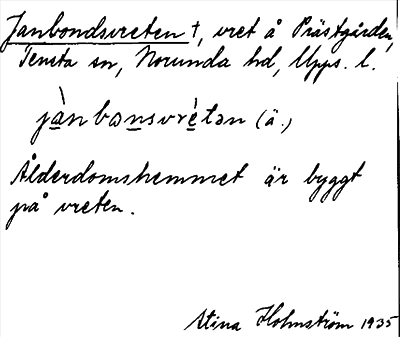 Janbondsvreten †, vret å Prästgården,
Tensta sn, Norunda hd, Upps. l.
jànbɔnsvrètən (ä.)
Ålderdomshemmet är byggt
på vreten.
Stina Holmström 1935